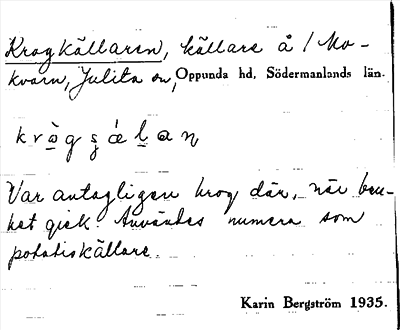 Krogkällaren, källare å / Mo-
kvarn, Julita sn, Oppunda hd, Södermanlands län.
krògsǽlan
Var antagligen krog där, när bru-
ket gick. Användes numera som
potatiskällare.
Karin Bergström 1935.